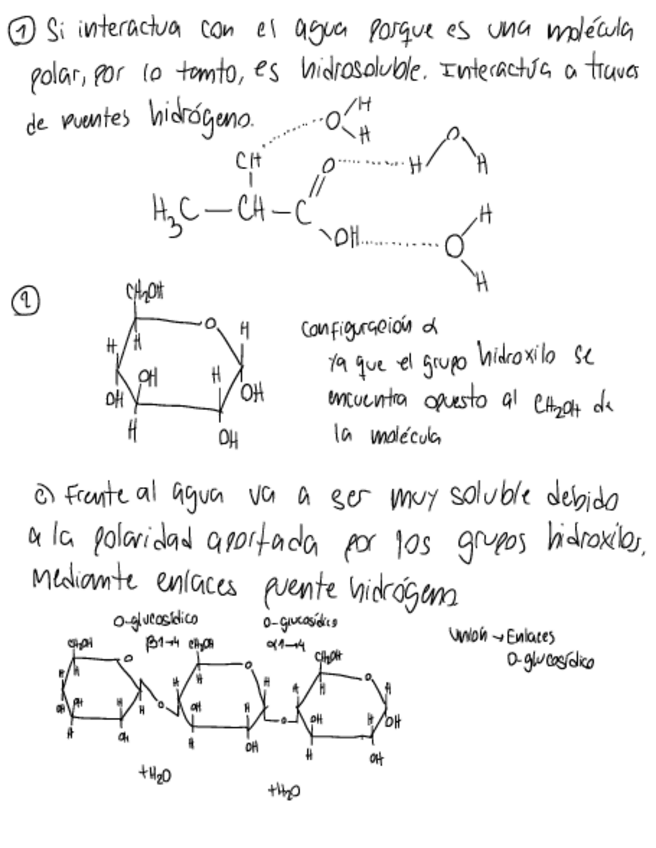 ① Si interactua con el agua porque es una molécula
polar, por lo tanto, es hidrosoluble. Interactúa a traves
de puentes hidrógeno.
O H H
CH
O H O H
H₃C — CH — C
OH O H H
② CH₂OH
O H
H H
OH H
OH OH
H OH
Configuración α
Ya que el grupo hidroxilo se
encuentra opuesto al CH₂OH de
la molécula
c) Frente al agua va a ser muy soluble debido
a la polaridad aportada por los grupos hidroxilos,
Mediante enlaces puente hidrógeno
O-glucosídico O-glucosídico
β1→4 α1→4
Unión → Enlaces
O-glucosídico
CH₂OH CH₂OH CH₂OH
O O O
H H H H H H
OH OH O OH H O OH H OH
H OH H H OH H OH
+H₂O
+H₂O